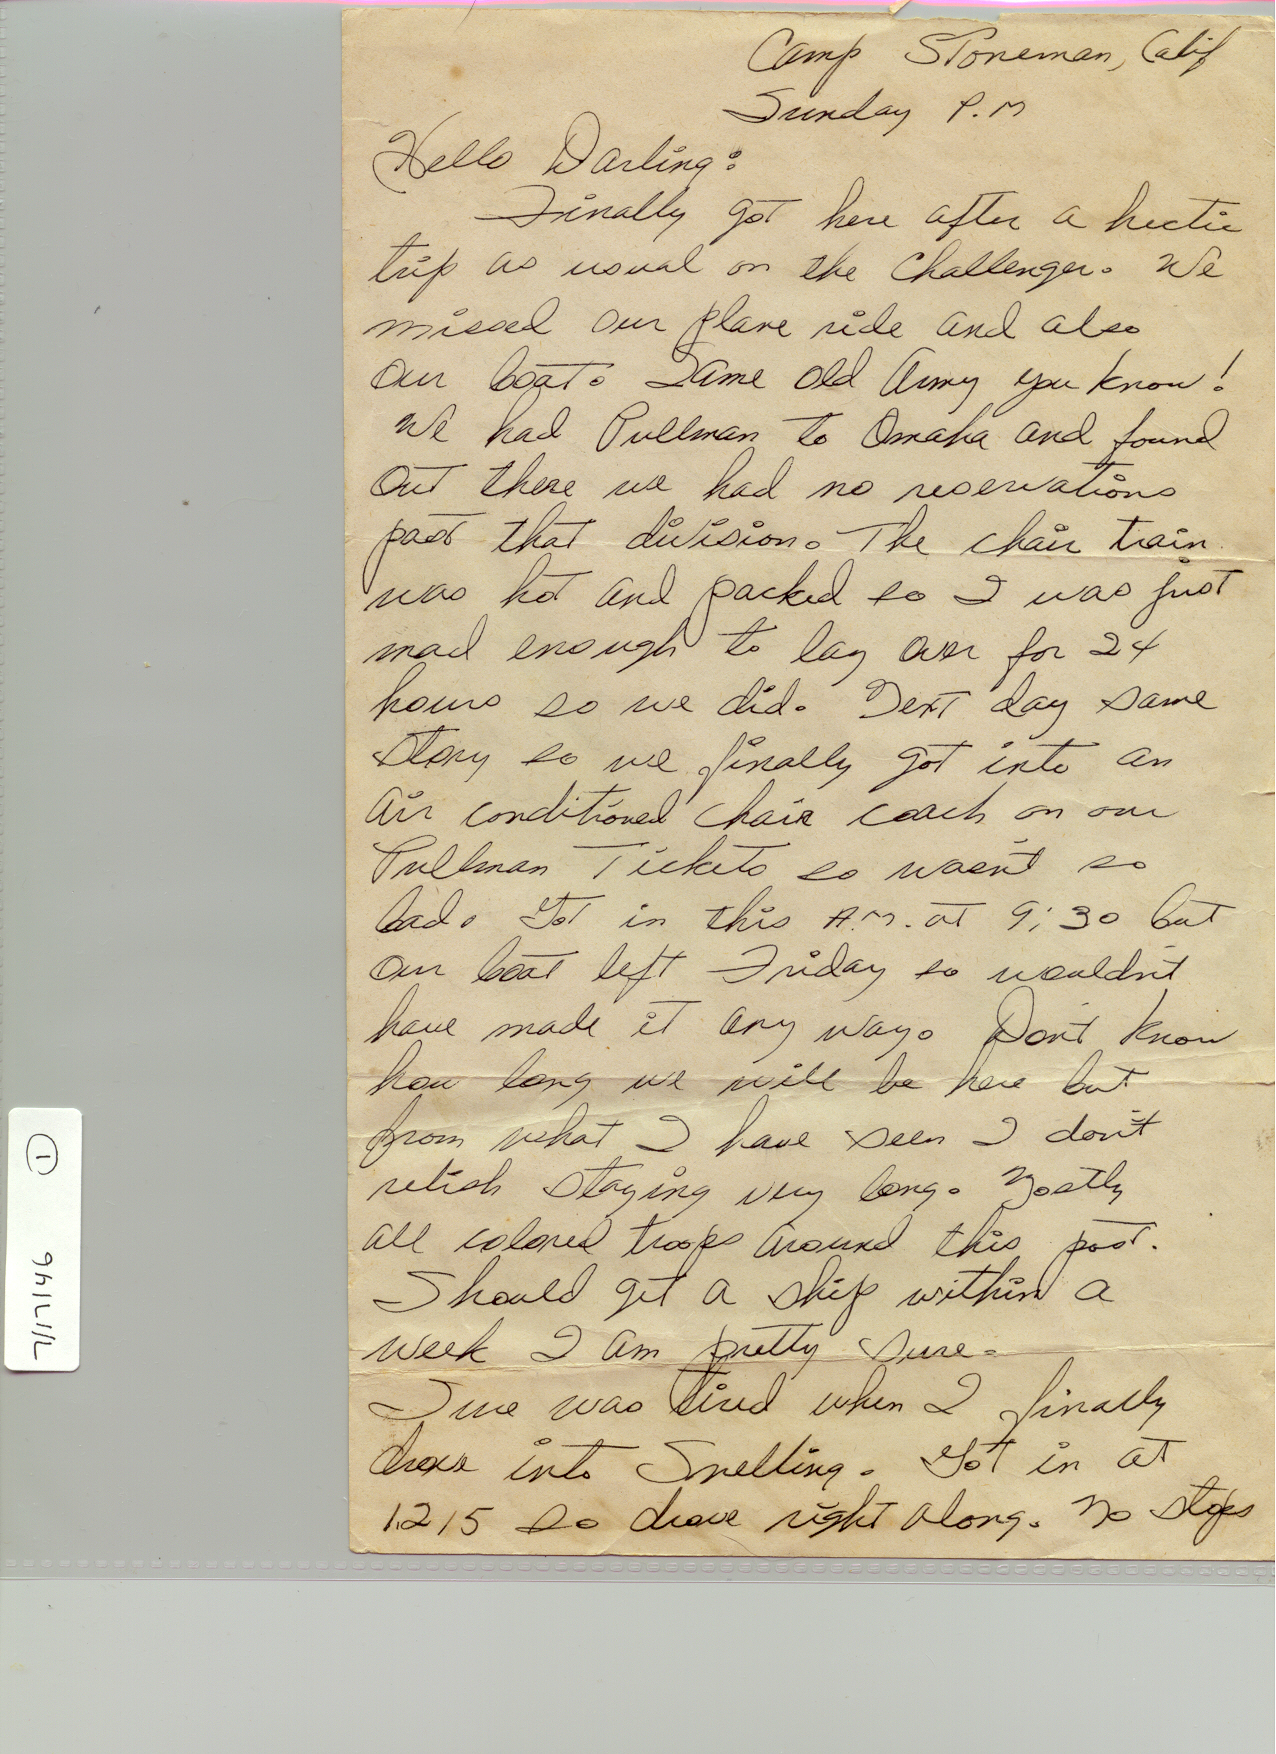 Camp Stoneman, Calif
Sunday P.M
Hello Darling:
Finally got here after a hectic
trip as usual on the Challenger. We
missed our plane ride and also
our boat. Same old Army you know!
We had Pullman to Omaha and found
out there we had no reservations
past that division. The chair train
was hot and packed so I was just
mad enough to lay over for 24
hours so we did. Next day same
story so we finally got into an
air conditioned chair coach on our
Pullman Tickets so wasn't so
bad. Got in this A.M. at 9:30 but
our boat left Friday so wouldn't
have made it any way. Don't know
how long we will be here but
from what I have seen I don't
relish staying very long. Mostly
all colored troops around this post.
Should get a ship within a
week I am pretty sure.
Sure was tired when I finally
drove into Snelling. Got in at
1215 so drove right along. No stops
① 7/7/46